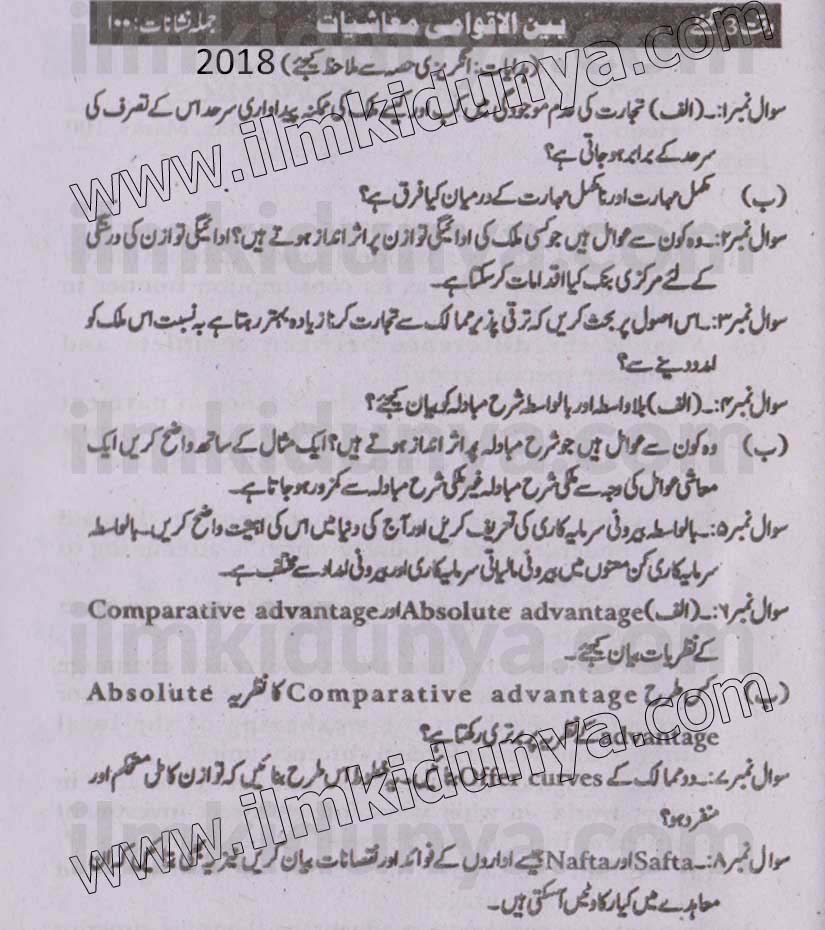 بین الاقوامی معاشیات جملہ نشانات: ۱۰۰
(ہدایات: انگریزی حصہ سے ملاحظہ کیجئے) 2018
سوال نمبر ۱:۔ (الف) تجارت کی عدم موجودگی میں کب اور کیسے ملک کی ممکنہ پیداواری سرحد اس کے تصرف کی
سرحد کے برابر ہو جاتی ہے؟
(ب) مکمل مہارت اور نامکمل مہارت کے درمیان کیا فرق ہے؟
سوال نمبر ۲:۔ وہ کون سے عوامل ہیں جو کسی ملک کی ادائیگی توازن پر اثر انداز ہوتے ہیں؟ ادائیگی توازن کی درستگی
کے لئے مرکزی بنک کیا اقدامات کر سکتا ہے۔
سوال نمبر ۳:۔ اس اصول پر بحث کریں کہ ترقی پذیر ممالک سے تجارت کرنا زیادہ بہتر رہتا ہے بہ نسبت اس ملک کو
امداد دینے سے؟
سوال نمبر ۴:۔ (الف) بلاواسطہ اور بالواسطہ شرح مبادلہ کو بیان کیجئے؟
(ب) وہ کون سے عوامل ہیں جو شرح مبادلہ پر اثر انداز ہوتے ہیں؟ ایک مثال کے ساتھ واضح کریں ایک
معاشی عوامل کی وجہ سے ملکی شرح مبادلہ غیر ملکی شرح مبادلہ سے کمزور ہو جاتا ہے۔
سوال نمبر ۵:۔ بالواسطہ بیرونی سرمایہ کاری کی تعریف کریں اور آج کی دنیا میں اس کی اہمیت واضح کریں۔ بالواسطہ
سرمایہ کاری کن معنوں میں بیرونی مالیاتی سرمایہ کاری اور بیرونی امداد سے مختلف ہے۔
سوال نمبر ۶:۔ (الف) Absolute advantage اور Comparative advantage
کے نظریات بیان کیجئے۔
(ب) کس طرح Comparative advantage کا نظریہ Absolute
advantage کے نظریہ پر برتری رکھتا ہے؟
سوال نمبر ۷:۔ دو ممالک کے Offer curves بنائیں۔ یہ خطوط اس طرح بنائیں کہ توازن کامل مستحکم اور
منفرد ہو؟
سوال نمبر ۸:۔ Safta اور Nafta جیسے اداروں کے فوائد اور نقصانات بیان کریں نیز
معاہدے میں کیا رکاوٹیں آ سکتی ہیں۔
www.ilmkidunya.com
www.ilmkidunya.com
ilmkidunya.com
ilmkidunya.com
ilmkidunya.com
ilmkidunya.com
ilmkidunya.com